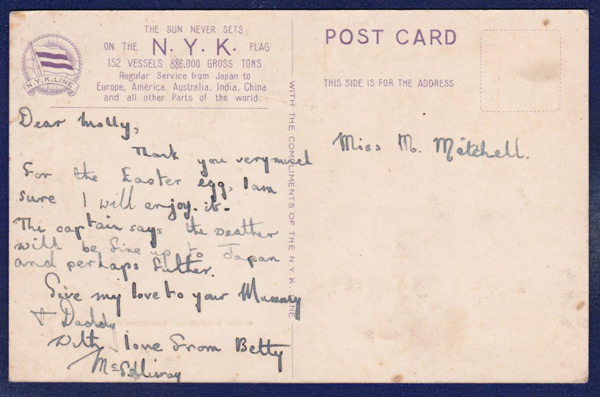 THE SUN NEVER SETS
ON THE N.Y.K. FLAG
152 VESSELS 886,000 GROSS TONS
Regular Service from Japan to
Europe, America, Australia, India, China
and all other Parts of the world.
N.Y.K. LINE
POST CARD
THIS SIDE IS FOR THE ADDRESS
WITH THE COMPLIMENTS OF THE N.Y.K. LINE
Dear Molly,
Thank you very much
for the Easter egg, I am
sure I will enjoy it.
The captain says the weather
will be fine up to Japan
and perhaps futher.
Give my love to your Mummy
+ Daddy
With love from Betty
Miss M. Mitchell.